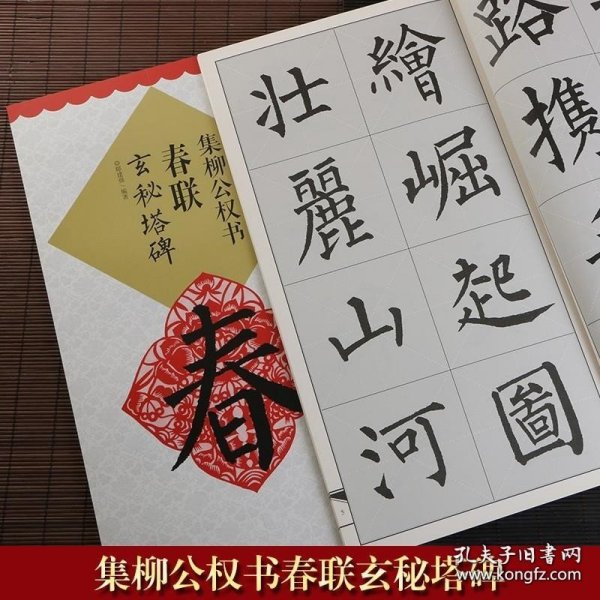 集柳公权书
春联
玄秘塔碑
春
路携
繪崛起圖
壯麗山河
5
集柳公权书春联玄秘塔碑
孔夫子旧书网
www.kongfz.com